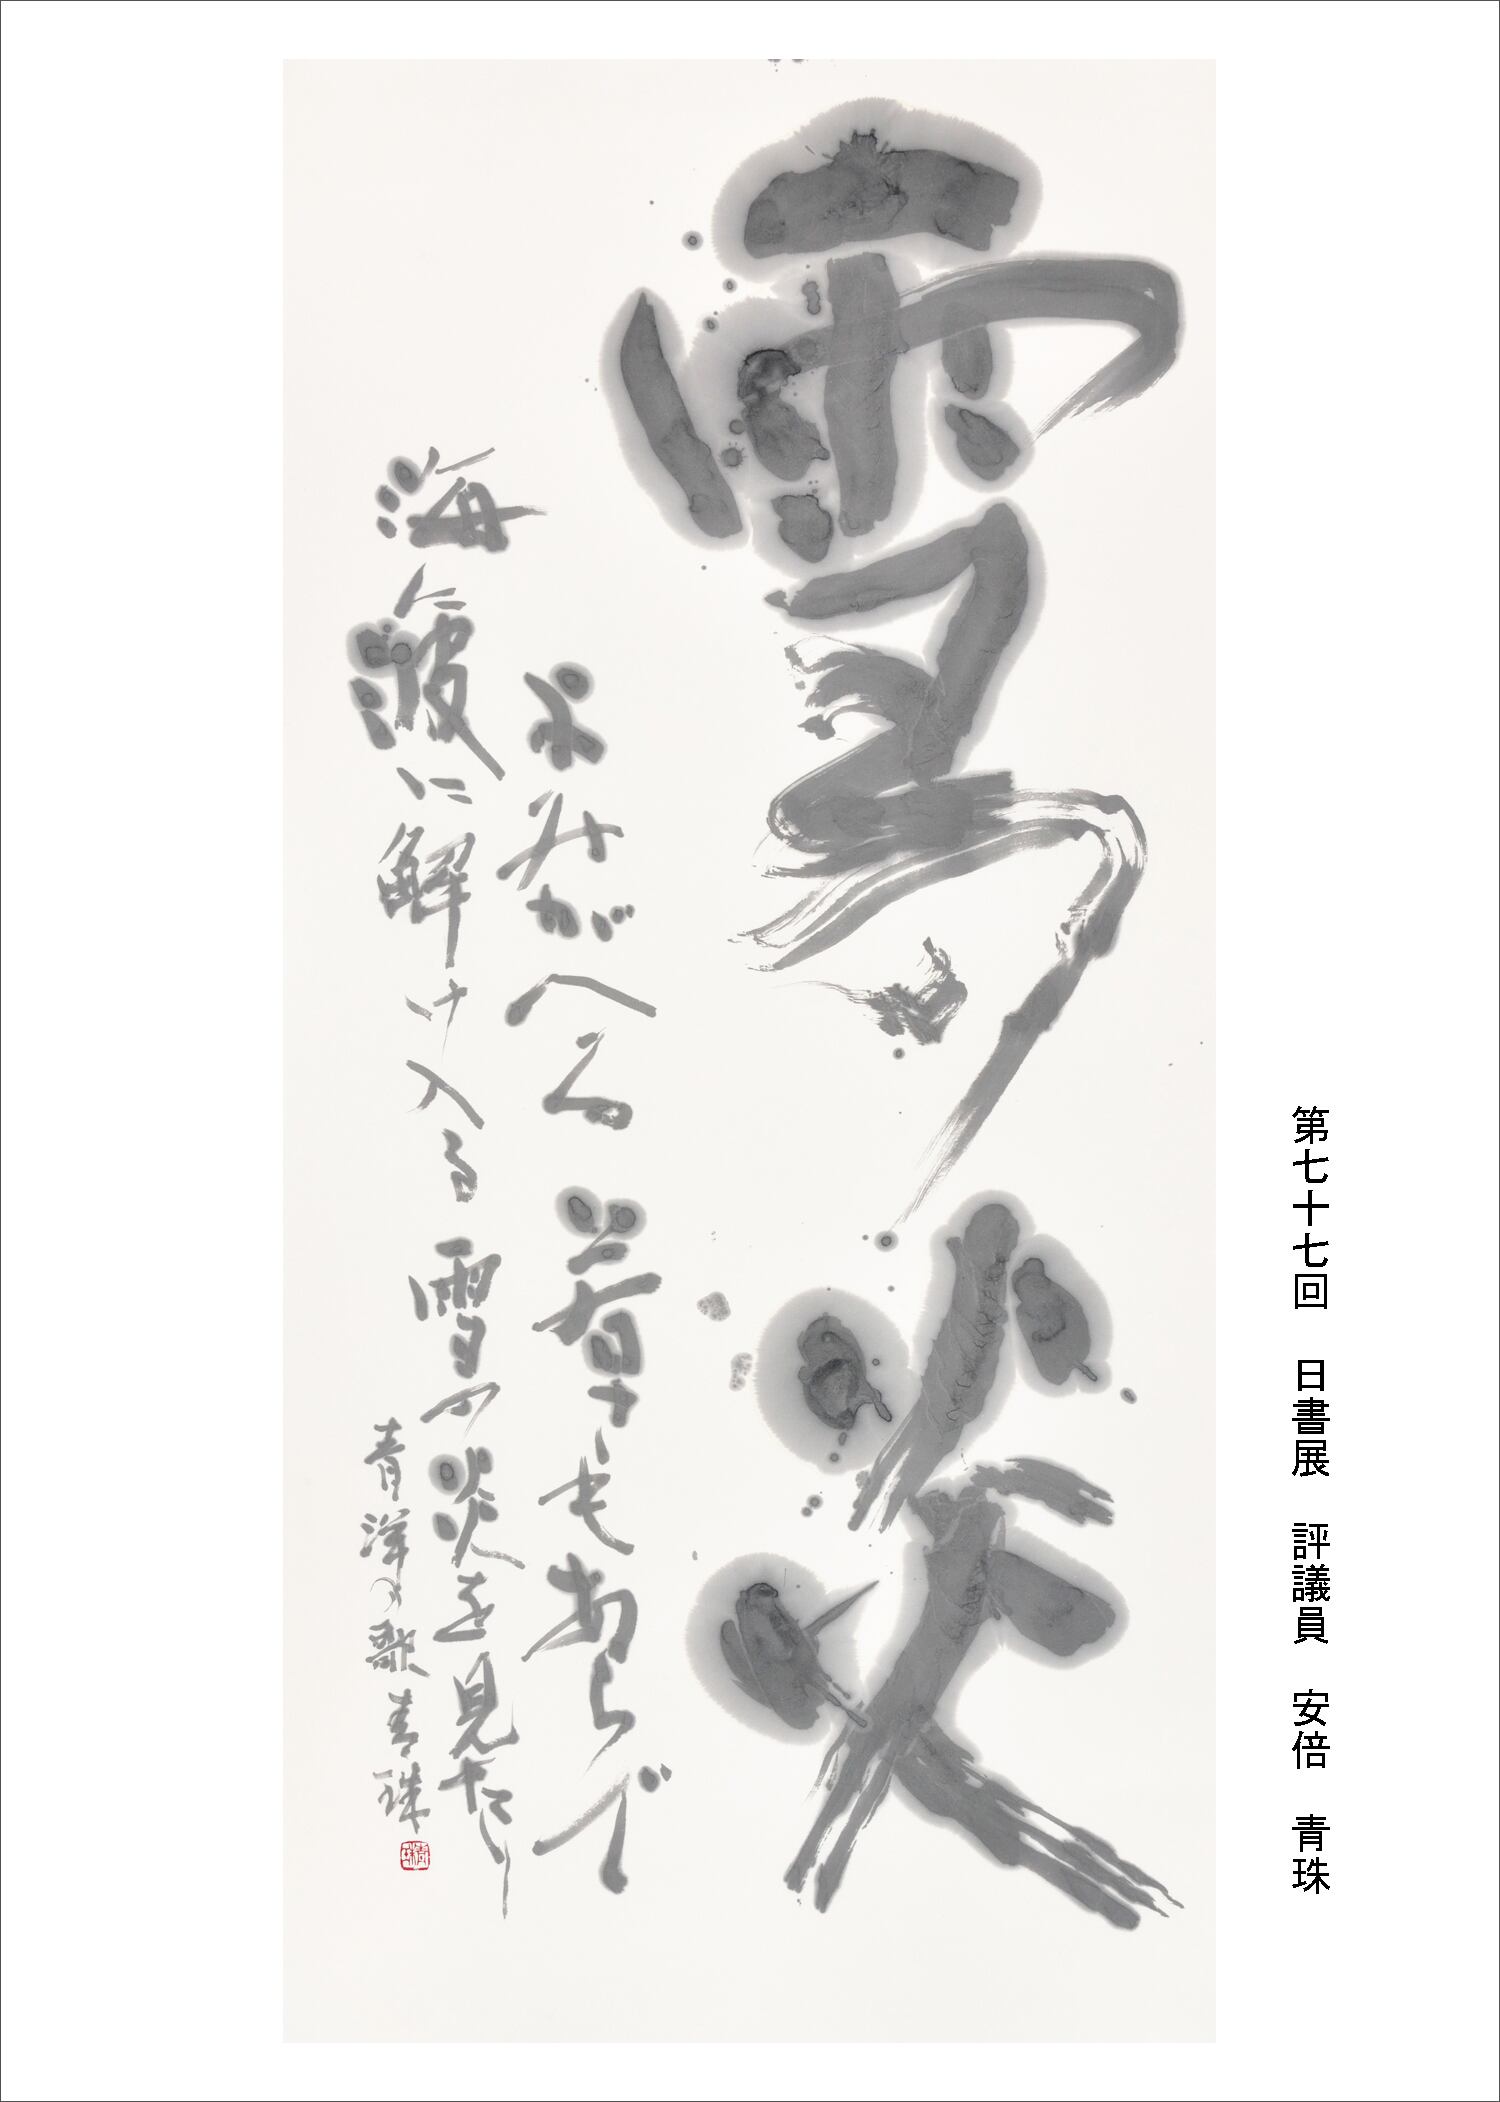 第七十七回 日書展 評議員 安倍 青珠
雪炎
よみがへる 若草もあらで
海に 波に解け入る雪の炎を見たり
青洋の歌 青珠